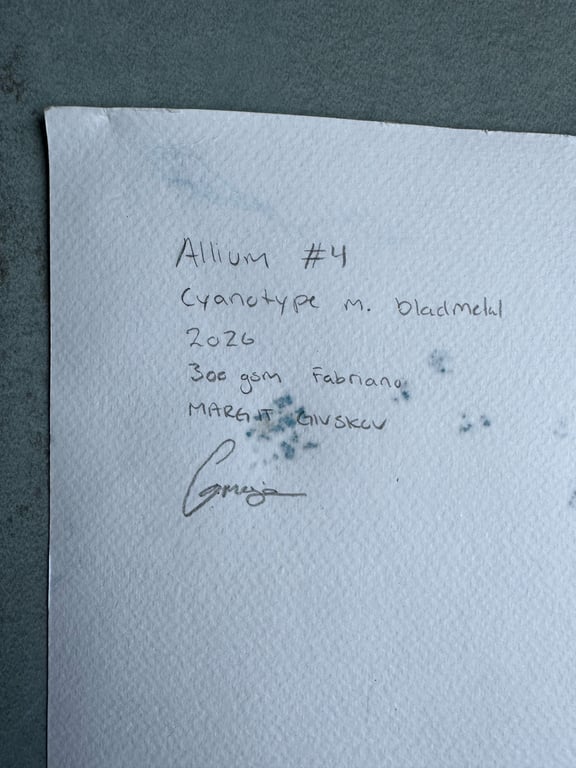 Allium #4
Cyanotype m. bladmetal
2026
300 gsm Fabriano
MARGIT GIVSKOV